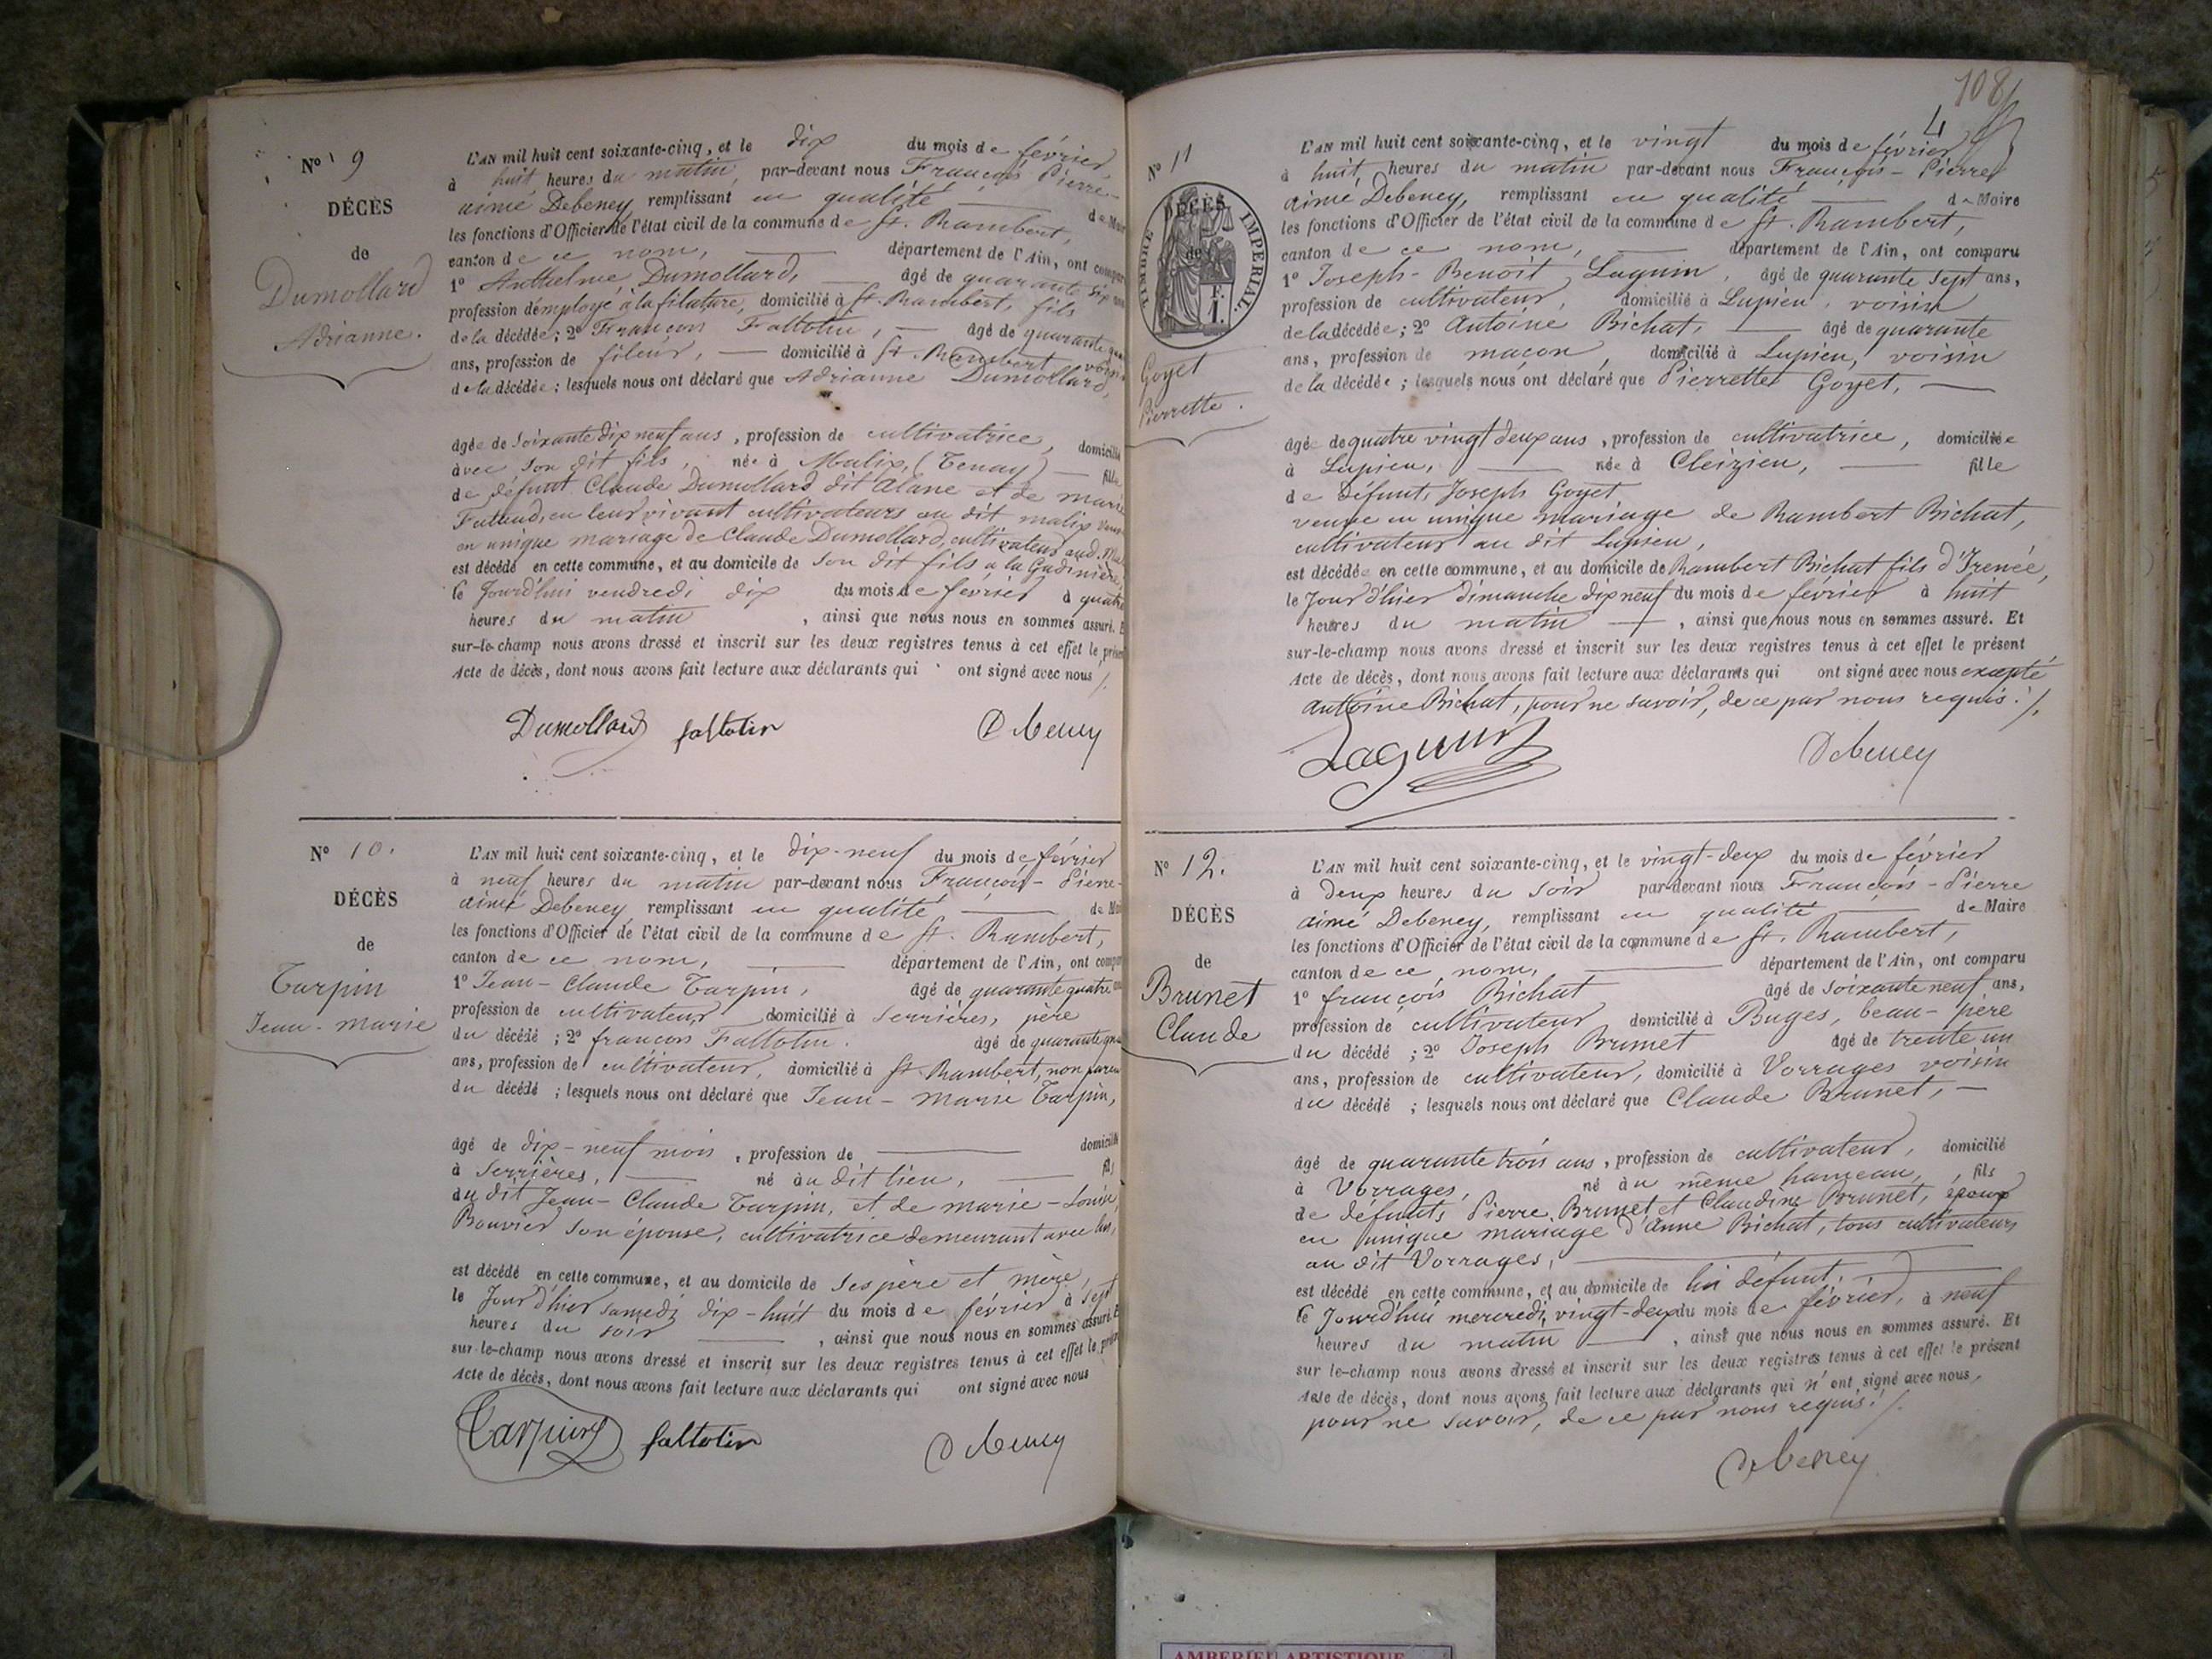 Nº 9
DÉCÈS
de
Dumollard
Adrianne.
L'AN mil huit cent soixante-cinq, et le dix du mois de février
à huit heures du matin, par-devant nous François Pierre-
aimé Debeney remplissant en qualité de
les fonctions d'Officier de l'état civil de la commune de St. Rambert,
canton de ce nom, département de l'Ain, ont
1º Anthelme Dumollard, âgé de quarante six
profession d'employé à la filature, domicilié à St. Rambert, fils
de la décédée; 2º François Faltotin, âgé de quarante
ans, profession de fileur, domicilié à St. Rambert
de la décédée; lesquels nous ont déclaré que Adrianne Dumollard,
âgée de soixante dix neuf ans, profession de cultivatrice,
avec son dit fils, née à Malix, (Tenay)
de défunt Claude Dumollard dit Alane et de marie
en leur vivant cultivateurs au dit malix
en unique mariage de Claude Dumollard, cultivateur
est décédé en cette commune, et au domicile de son dit fils a la Gadinière
le Jourd'hui vendredi dix du mois de février à quatre
heures du matin, ainsi que nous nous en sommes assuré.
sur-le-champ nous avons dressé et inscrit sur les deux registres tenus à cet effet le
Acte de décès, dont nous avons fait lecture aux déclarants qui ont signé avec nous ./.
Dumollard faltotin Debeney
Nº 10.
DÉCÈS
de
Tarpin
Jean-marie
L'AN mil huit cent soixante-cinq, et le dix-neuf du mois de février
à neuf heures du matin par-devant nous François-Pierre-
aimé Debeney remplissant en qualité de
les fonctions d'Officier de l'état civil de la commune de St. Rambert,
canton de ce nom, département de l'Ain, ont
1º Jean-Claude Tarpin, âgé de quarante quatre
profession de cultivateur domicilié à Serrières, père
du décédé; 2º françois Faltotin. âgé de quarante
ans, profession de cultivateur, domicilié à St. Rambert, non
du décédé; lesquels nous ont déclaré que Jean-Marie Tarpin,
âgé de dix-neuf mois, profession de
à Serrières, né au dit lieu,
du dit Jean-Claude Tarpin, et de marie-Louise
Bouvier son épouse, cultivatrice demeurant avec lui,
est décédé en cette commune, et au domicile de ses père et mère,
le Jour d'hier samedi dix-huit du mois de février à sept
heures du soir, ainsi que nous nous en sommes assuré.
sur-le-champ nous avons dressé et inscrit sur les deux registres tenus à cet effet le
Acte de décès, dont nous avons fait lecture aux déclarants qui ont signé avec nous
Tarpin faltotin Debeney
108
4
Nº 11
DÉCÈS
de
TIMBRE IMPÉRIAL.
Goyet
Pierrette.
L'AN mil huit cent soixante-cinq, et le vingt du mois de février
à huit heures du matin par-devant nous François-Pierre
aimé Debeney, remplissant en qualité de Maire
les fonctions d'Officier de l'état civil de la commune de St. Rambert,
canton de ce nom, département de l'Ain, ont comparu
1º Joseph-Benoît Laguin, âgé de quarante sept ans,
profession de cultivateur, domicilié à Lupieu, voisin
de la décédée; 2º Antoine Bichat, âgé de quarante
ans, profession de maçon, domicilié à Lupieu, voisin
de la décédée; lesquels nous ont déclaré que Pierrette Goyet,
âgée de quatre vingt deux ans, profession de cultivatrice, domiciliée
à Lupieu, née à Cleizieu, fille
de Défunt Joseph Goyet
veuve en unique mariage de Rambert Bichat,
cultivateur au dit Lupieu,
est décédée en cette commune, et au domicile de Rambert Bichat fils d'Irenée,
le Jour d'hier dimanche dix neuf du mois de février à huit
heures du matin, ainsi que nous nous en sommes assuré. Et
sur-le-champ nous avons dressé et inscrit sur les deux registres tenus à cet effet le présent
Acte de décès, dont nous avons fait lecture aux déclarants qui ont signé avec nous excepté
Antoine Bichat, pour ne savoir, de ce par nous requis ./.
Laguin Debeney
Nº 12.
DÉCÈS
de
Brunet
Claude
L'AN mil huit cent soixante-cinq, et le vingt-deux du mois de février
à deux heures du soir par-devant nous François-Pierre
aimé Debeney, remplissant en qualité de Maire
les fonctions d'Officier de l'état civil de la commune de St. Rambert,
canton de ce nom, département de l'Ain, ont comparu
1º françois Bichat âgé de soixante neuf ans,
profession de cultivateur domicilié à Buges, beau-père
du décédé; 2º Joseph Brunet âgé de trente un
ans, profession de cultivateur, domicilié à Vorrages voisin
du décédé; lesquels nous ont déclaré que Claude Brunet,
âgé de quarante trois ans, profession de cultivateur, domicilié
à Vorrages, né au même hameau, fils
de défunts Pierre Brunet et Claudine Brunet, époux
en unique mariage d'Anne Bichat, tous cultivateurs
au dit Vorrages,
est décédé en cette commune, et au domicile de lui défunt.
le Jourd'hui mercredi vingt-deux du mois de février, à neuf
heures du matin, ainsi que nous nous en sommes assuré. Et
sur le-champ nous avons dressé et inscrit sur les deux registres tenus à cet effet le présent
Acte de décès, dont nous avons fait lecture aux déclarants qui n'ont signé avec nous,
pour ne savoir, de ce par nous requis ./.
Debeney
AMBERIEU ARTISTIQUE